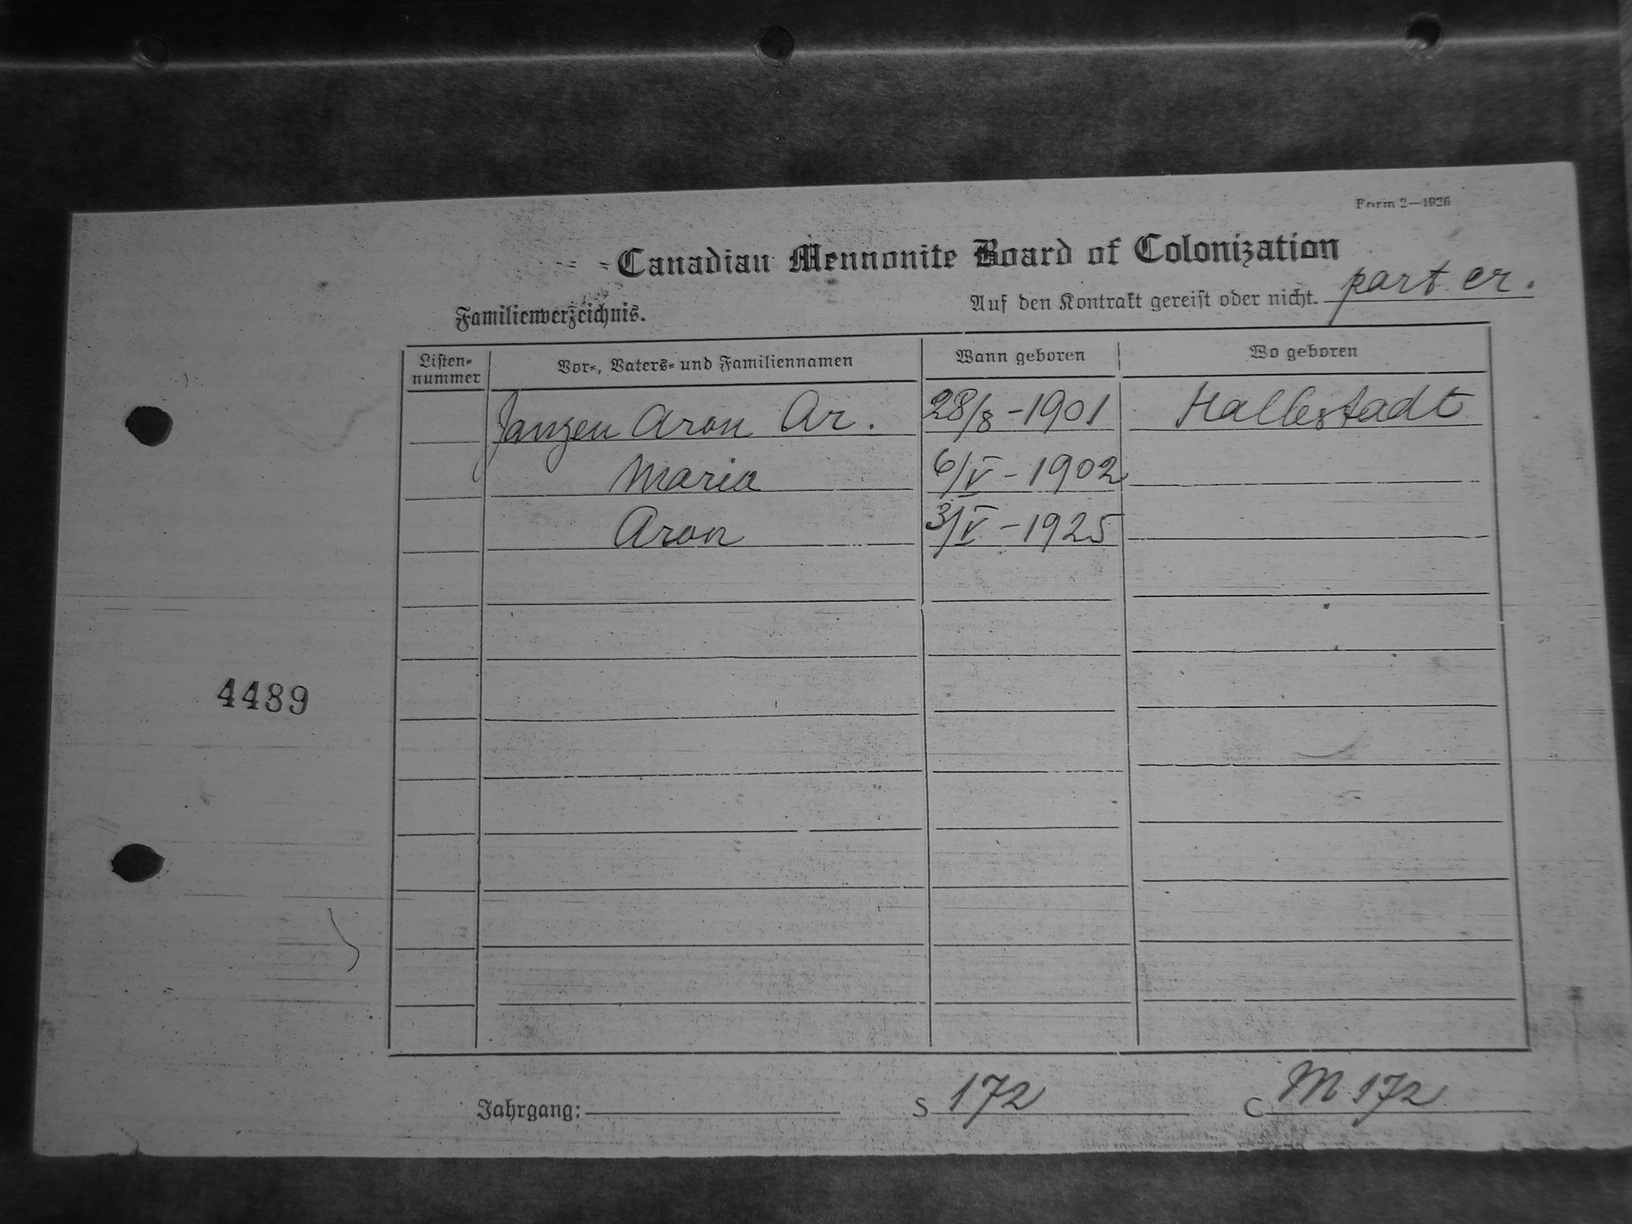 Form 2—1926
Canadian Mennonite Board of Colonization
Familienverzeichnis.
Auf den Kontrakt gereist oder nicht. part er.
Listen-
nummer
Vor-, Vaters- und Familiennamen
Wann geboren
Wo geboren
Janzen Aron Ar. 28/8 - 1901 Halbstadt
Maria 6/V - 1902
Aron 3/V - 1925
4489
Jahrgang: S 172 C M 172